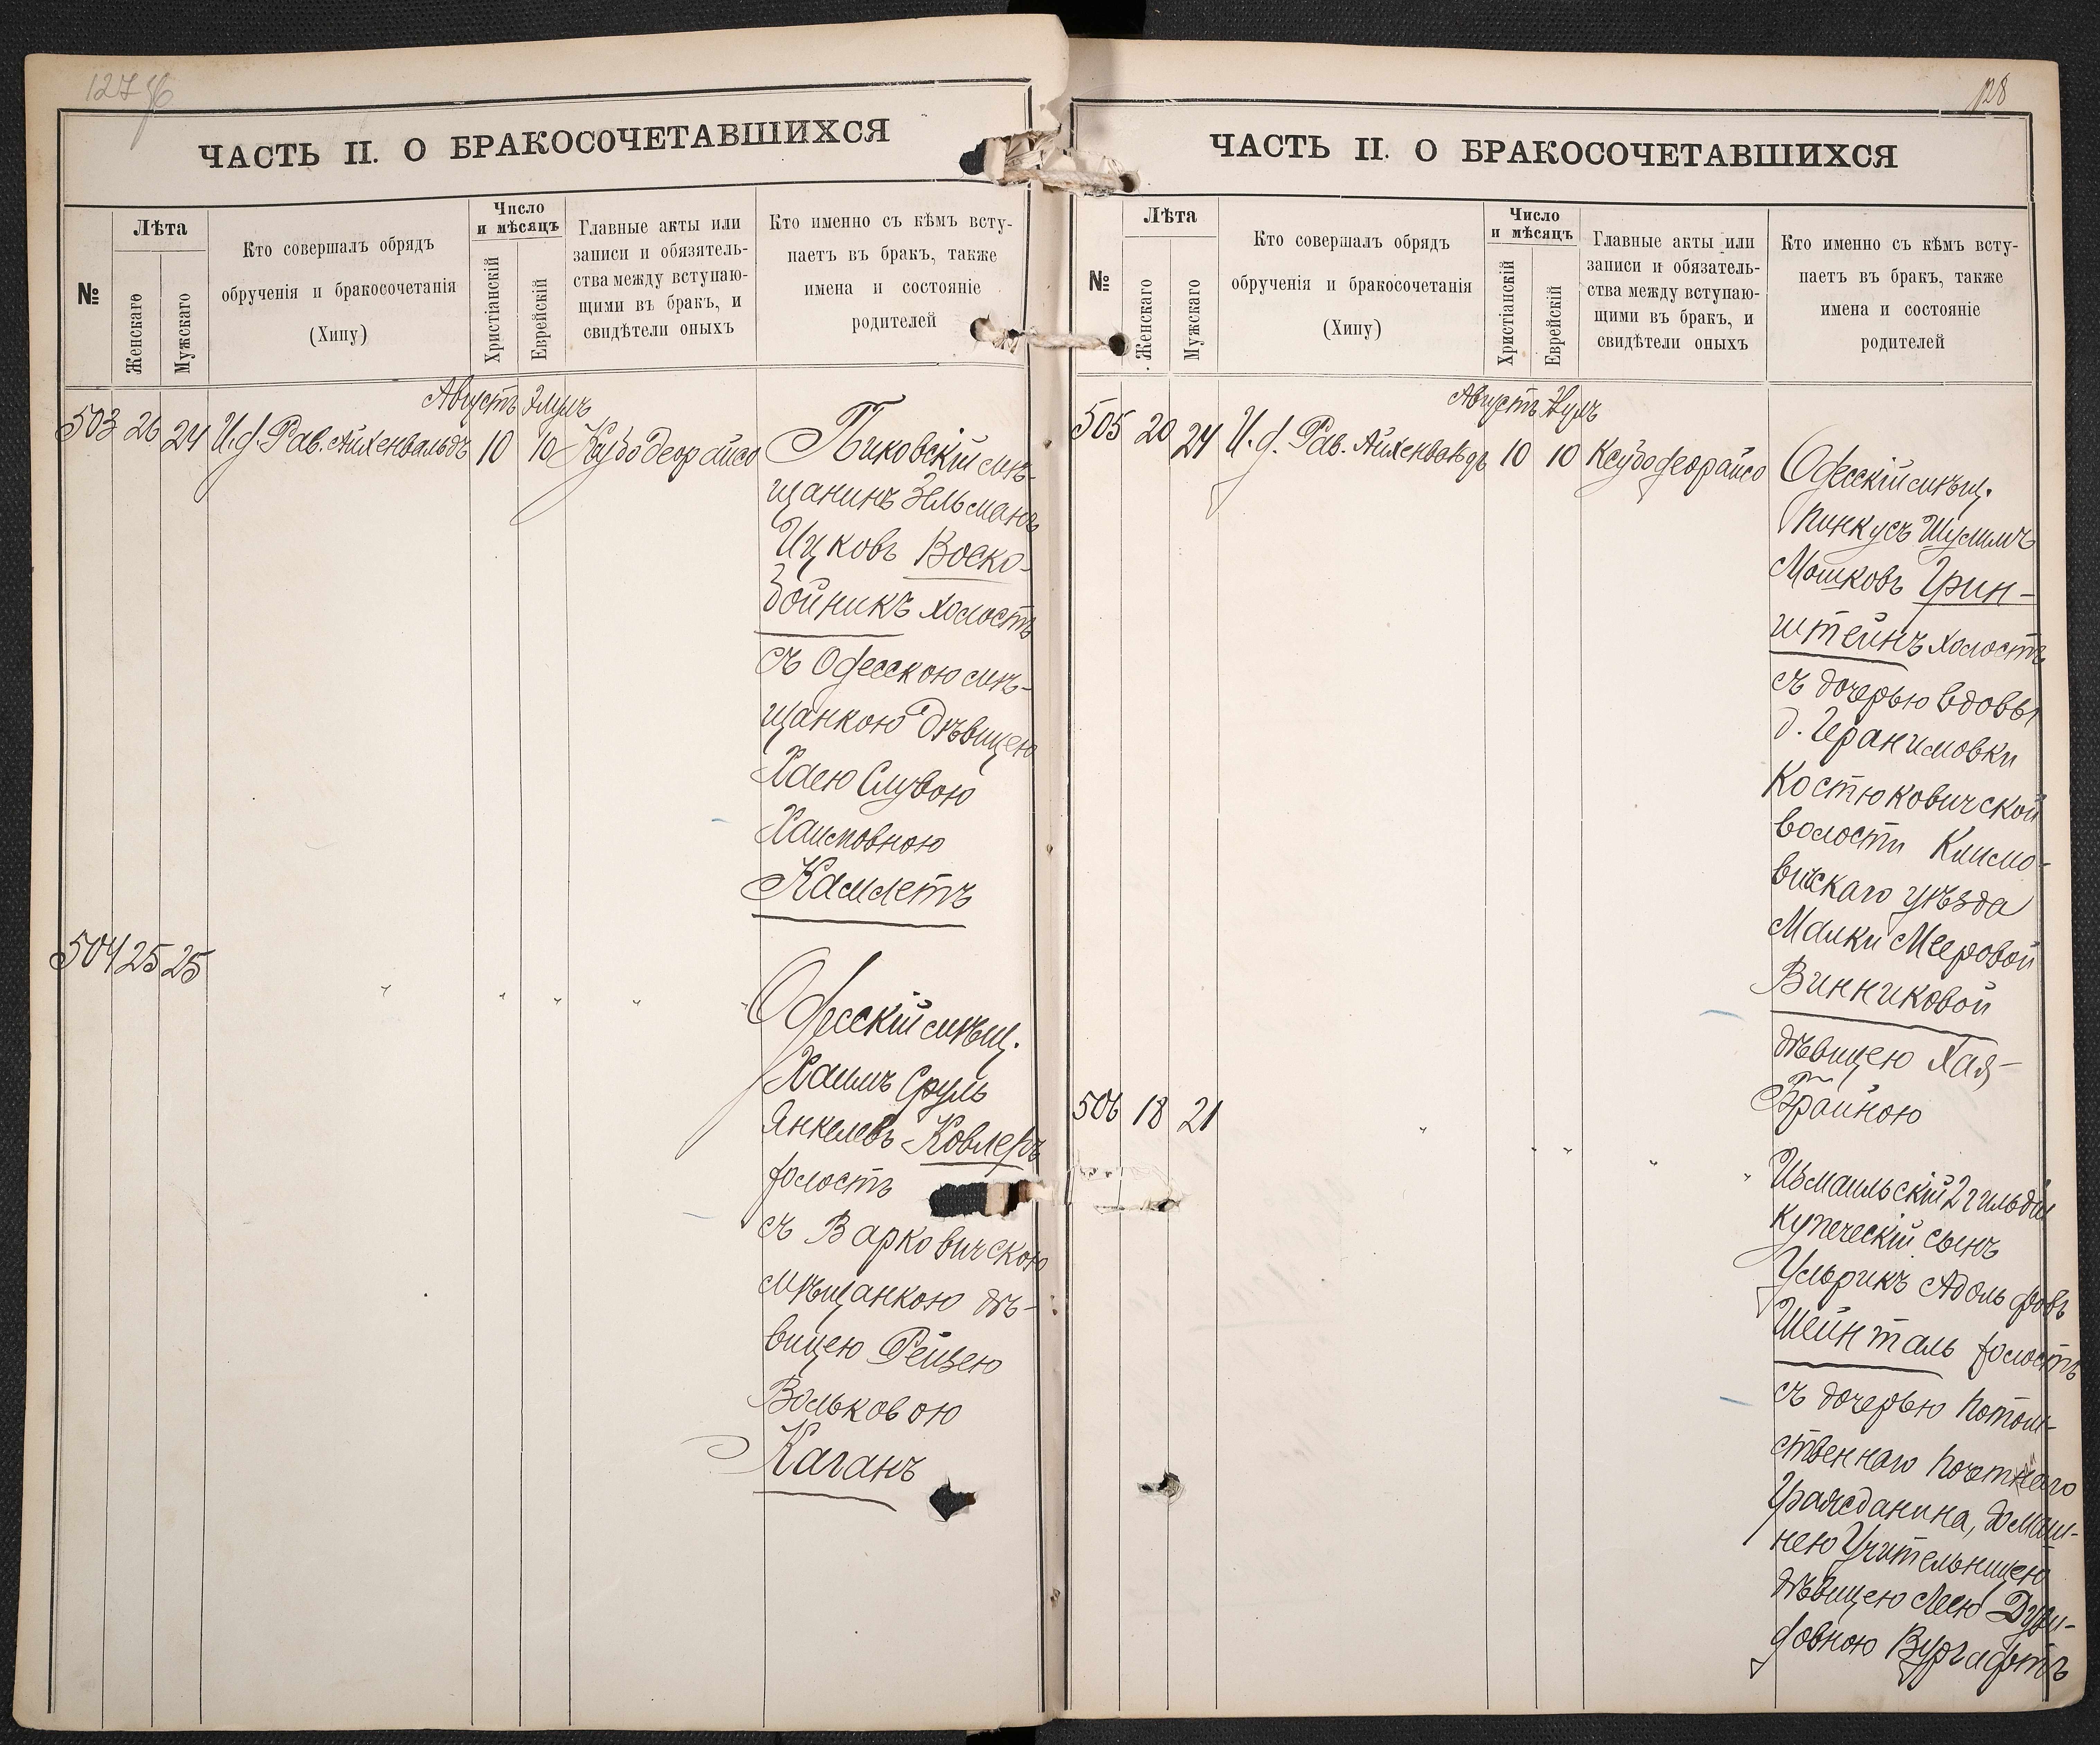 127
ЧАСТЬ II. О БРАКОСОЧЕТАВШИХСЯ
№
Лѣта
Женскаго
Мужскаго
Кто совершалъ обрядъ
обрученія и бракосочетанія
(Хипу)
Число
и мѣсяцъ
Христіанскій
Еврейскій
Главные акты или
записи и обязятель-
ства между вступаю-
щими въ бракъ, и
свидѣтели оныхъ
Кто именно съ кѣмъ всту-
паетъ въ бракъ, также
имена и состояніе
родителей
Августъ Элулъ
503 26 24 И.д. Рав. Айхенвальдъ 10 10 Ксубо деорайсо
Пиковскій мѣ-
щанинъ Зельманъ
Ицковъ Воско-
бойникъ холостъ
съ Одесскою мѣ-
щанкою дѣвицею
Хаею Слувою
Хаимовною
Камлетъ
504 25 25 " " " " "
Одесскій мѣщ.
Хаимъ Сруль
Янкелевъ Ковлеръ
холостъ
съ Варковичскою
мѣщанкою дѣ-
вицею Рейзею
Вольковою
Каганъ
128
ЧАСТЬ II. О БРАКОСОЧЕТАВШИХСЯ
№
Лѣта
Женскаго
Мужскаго
Кто совершалъ обрядъ
обрученія и бракосочетанія
(Хипу)
Число
и мѣсяцъ
Христіанскій
Еврейскій
Главные акты или
записи и обязатель-
ства между вступаю-
щими въ бракъ, и
свидѣтели оныхъ
Кто именно съ кѣмъ всту-
паетъ въ бракъ, также
имена и состояніе
родителей
Августъ Элулъ
505 20 24 И.д. Рав. Айхенвальдъ 10 10 Ксубо деорайсо
Одесскій мѣщ.
Пинкусъ Шулимъ
Мошковъ Грин-
штейнъ холостъ
съ дочерью вдовы
д. Геранимовки
Костюковичской
волости Климо-
вичскаго уѣзда
Малки Мееровой
Винниковой
дѣвицею Хая-
Брайною
506 18 21 " " " " "
Измаильскій 2 гильдіи
купеческій сынъ
Ульрикъ Адольфовъ
Шейнталь холостъ
съ дочерью потом-
ственнаго почетнаго
Гражданина, домаш-
нею Учительницею
дѣвицею Леею
Вургафтъ